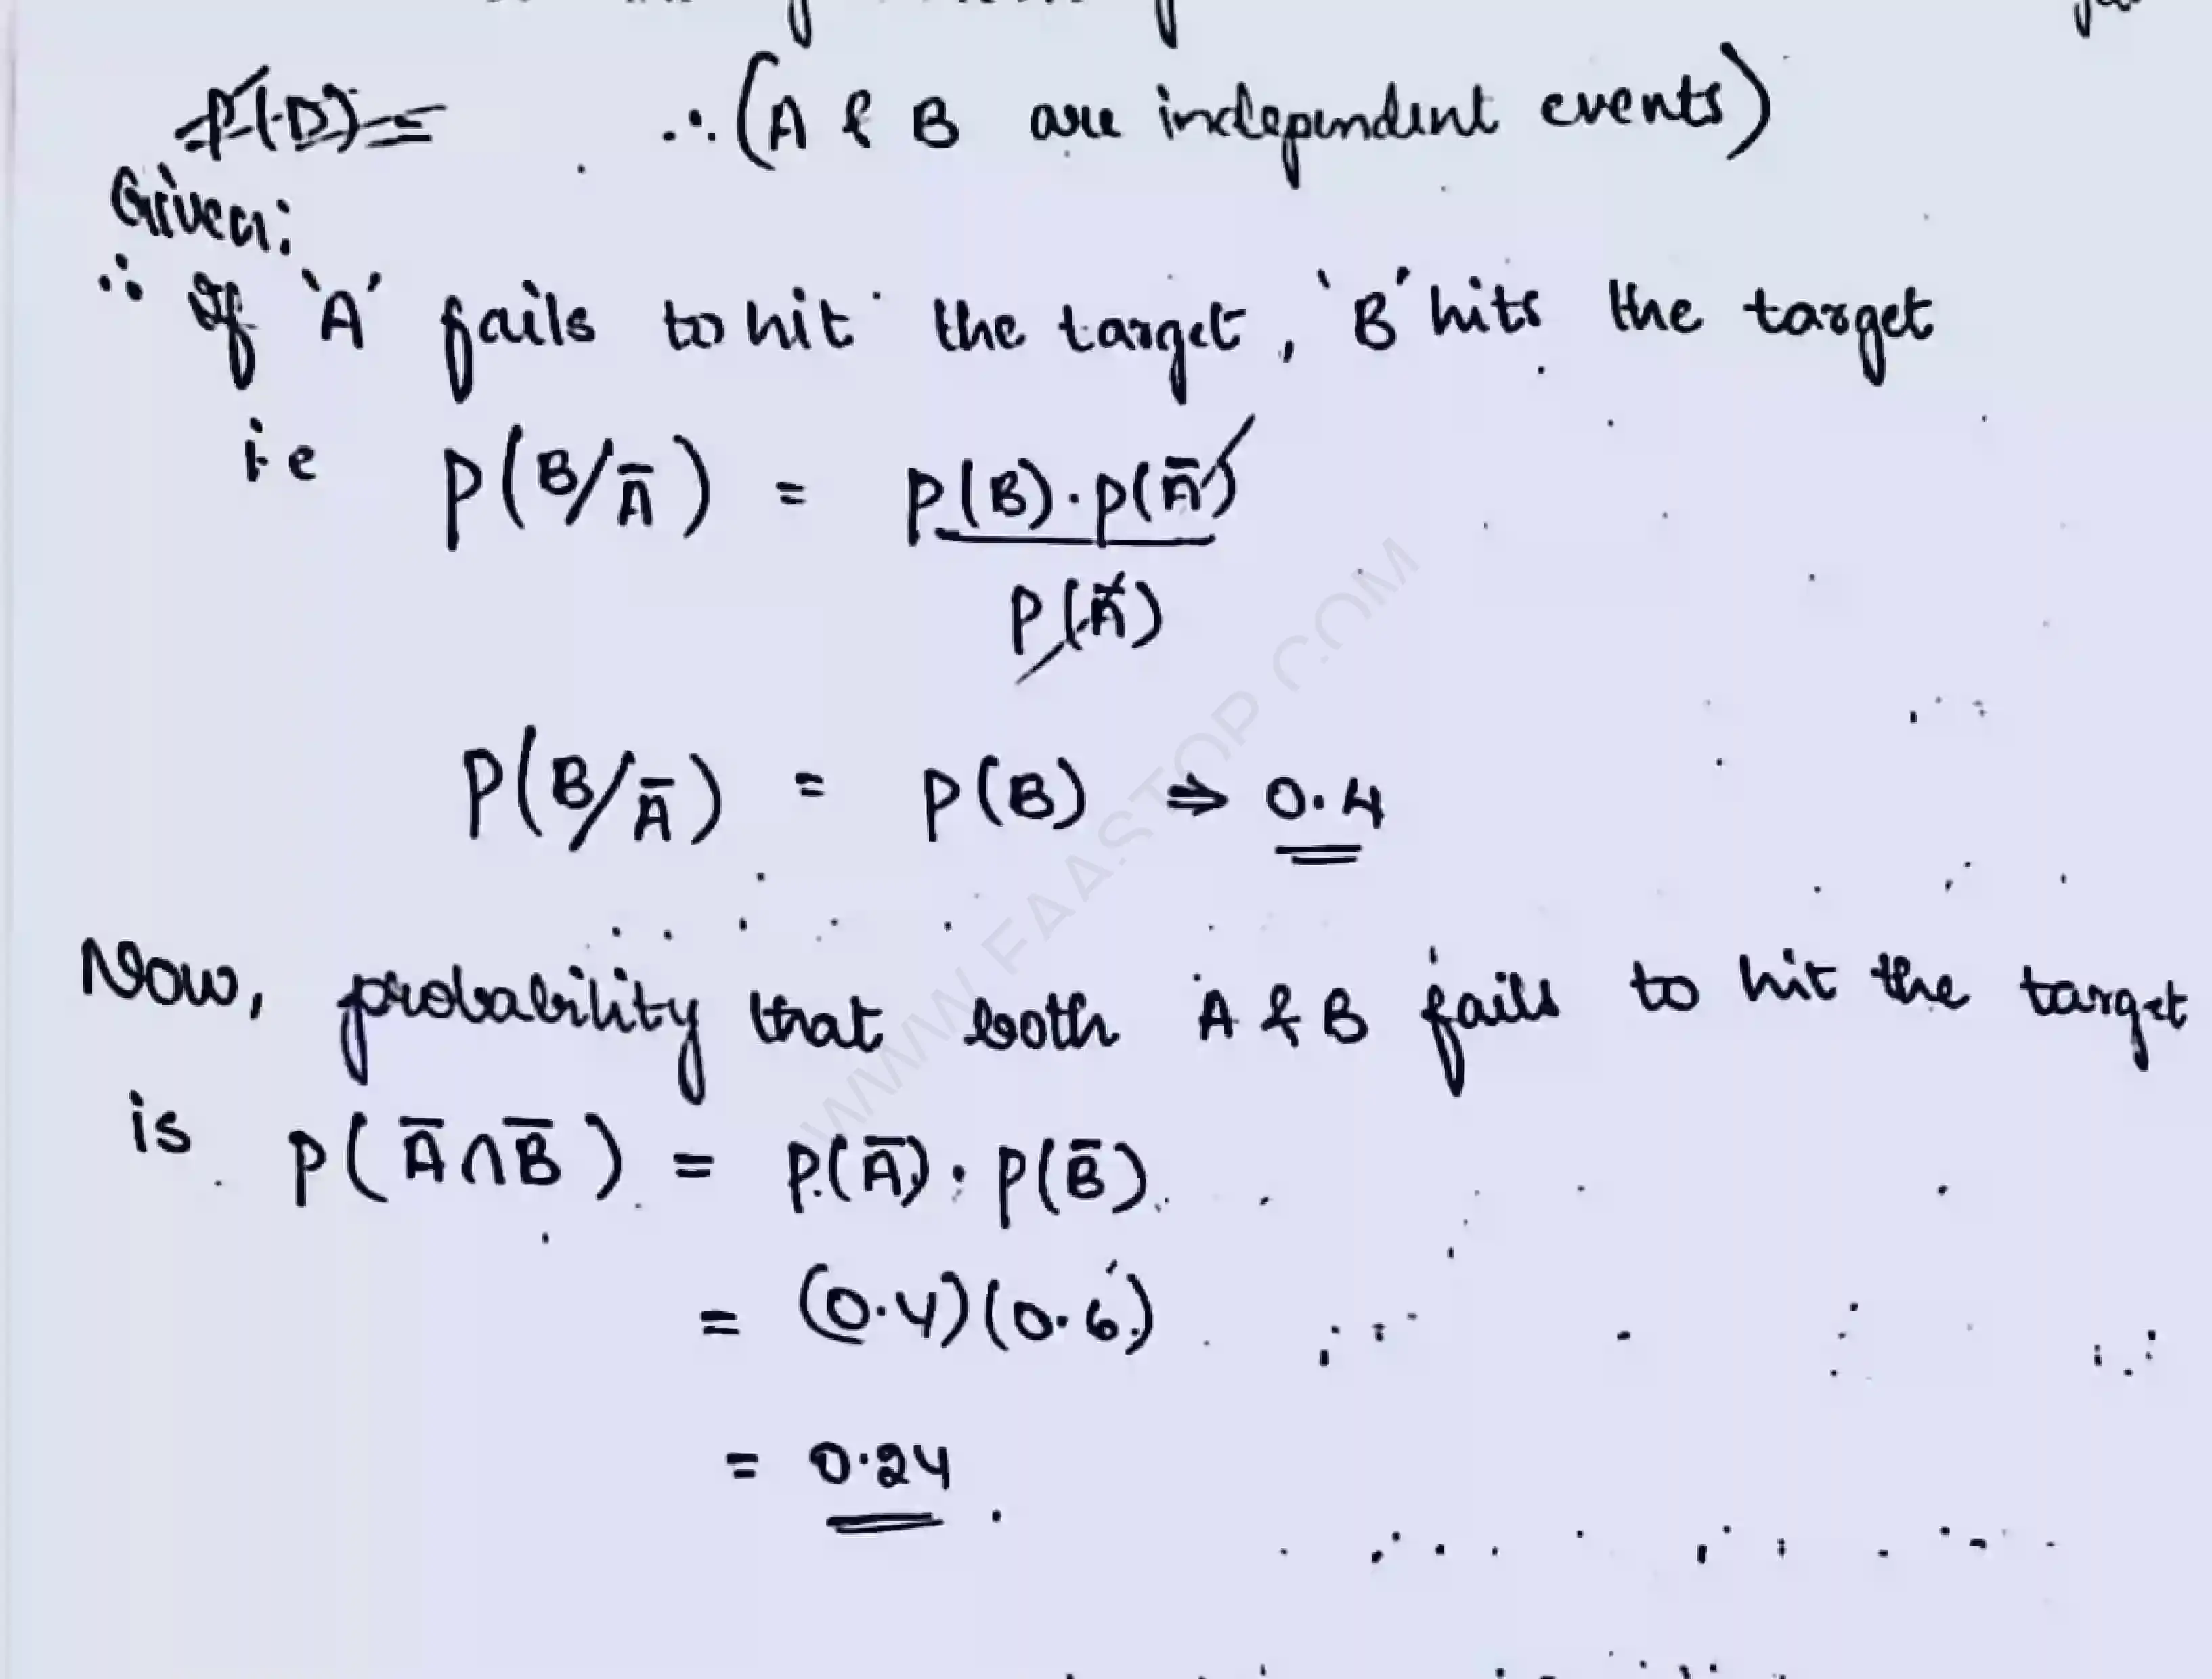 P(D) =
∴ (A & B are independent events)
Given:
∴ If 'A' fails to hit the target, 'B' hits the target
i.e P(B/Ā) = P(B)·P(Ā)
P(Ā)
P(B/Ā) = P(B) ⇒ 0.4
Now, probability that both A & B fails to hit the target
is P(Ā∩B̄) = P(Ā)·P(B̄)
= (0.4)(0.6)
= 0.24.
WWW.FAASTOP.COM